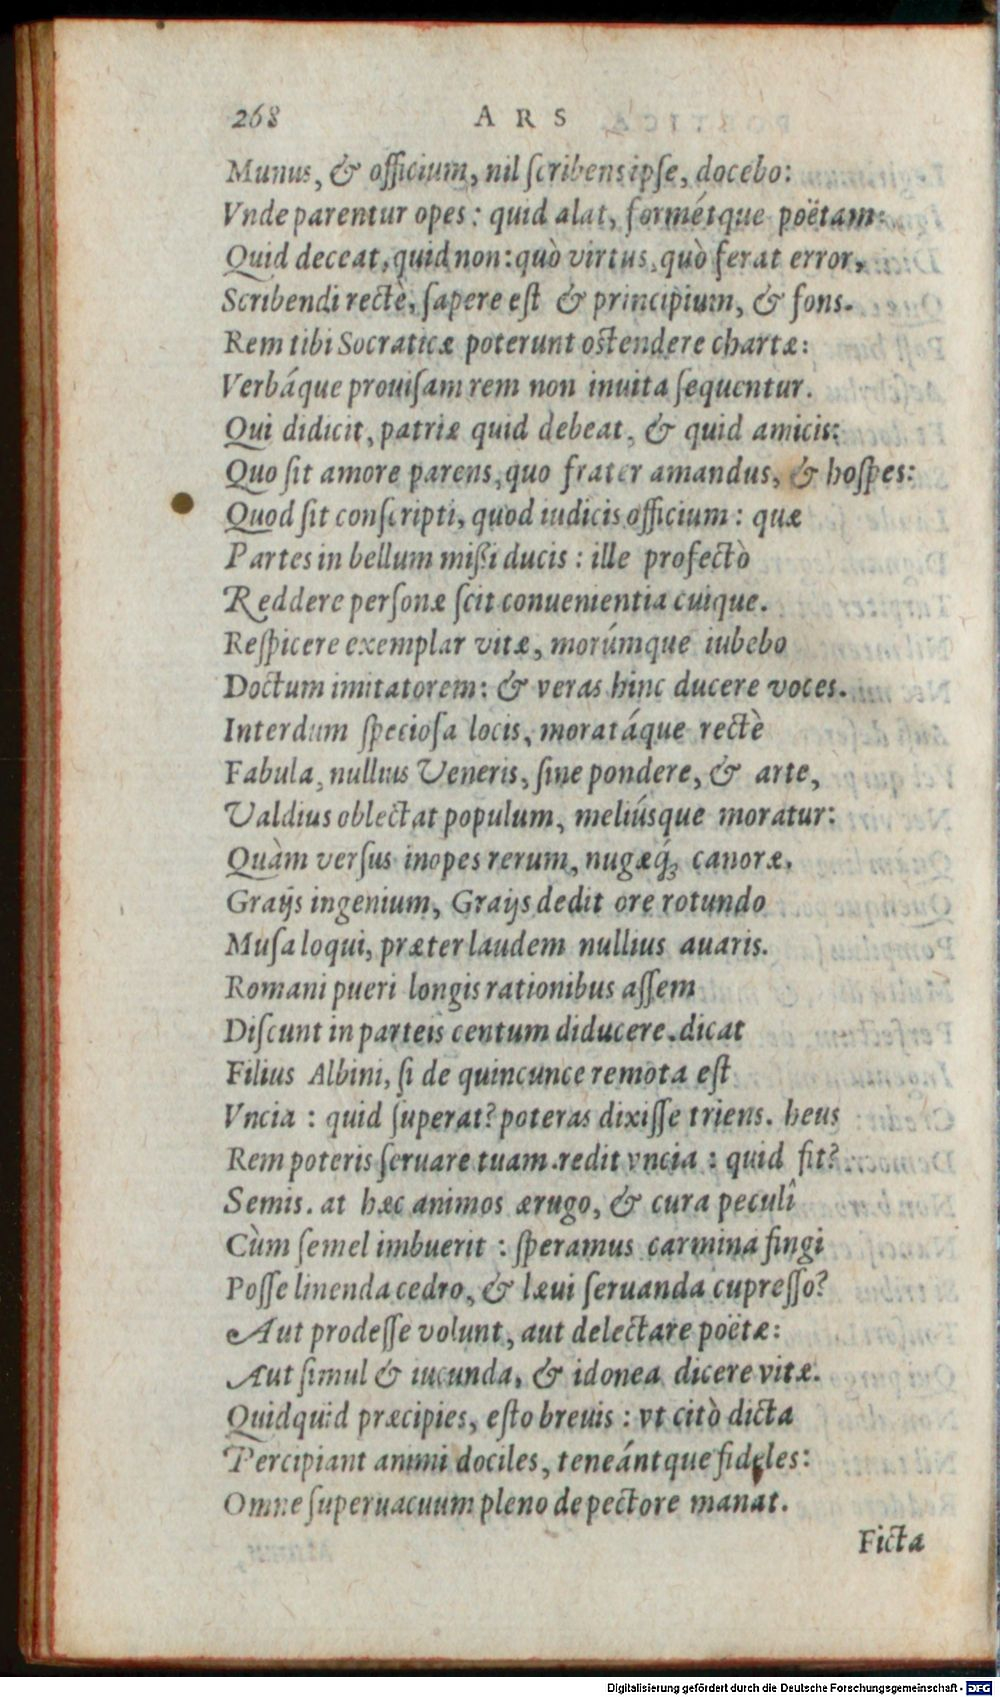 268 ARS
Munus, & officium, nil ſcribens ipſe, docebo:
Vnde parentur opes: quid alat, formétque poëtam:
Quid deceat, quid non: quò virtus, quò ferat error,
Scribendi rectè, ſapere eſt & principium, & fons.
Rem tibi Socraticæ poterunt oſtendere chartæ:
Verbáque prouiſam rem non inuita ſequentur.
Qui didicit, patriæ quid debeat, & quid amicis:
Quo ſit amore parens, quo frater amandus, & hoſpes:
Quod ſit conſcripti, quod iudicis officium: quæ
Partes in bellum miſsi ducis: ille profectò
Reddere perſonæ ſcit conuenientia cuique.
Reſpicere exemplar vitæ, morúmque iubebo
Doctum imitatorem: & veras hinc ducere voces.
Interdum ſpecioſa locis, moratáque rectè
Fabula, nullius Veneris, ſine pondere, & arte,
Valdius oblectat populum, meliúsque moratur:
Quàm verſus inopes rerum, nugæq́; canoræ.
Graijs ingenium, Graijs dedit ore rotundo
Muſa loqui, præter laudem nullius auaris.
Romani pueri longis rationibus aſſem
Diſcunt in parteis centum diducere. dicat
Filius Albini, ſi de quincunce remota eſt
Vncia: quid ſuperat? poteras dixiſſe triens. heus
Rem poteris ſeruare tuam. redit vncia: quid fit?
Semis. at hæc animos ærugo, & cura peculî
Cùm ſemel imbuerit: ſperamus carmina fingi
Poſſe linenda cedro, & læui ſeruanda cupreſſo?
Aut prodeſſe volunt, aut delectare poëtæ:
Aut ſimul & iucunda, & idonea dicere vitæ.
Quidquid præcipies, eſto breuis: vt citò dicta
Percipiant animi dociles, teneántque fideles:
Omne ſuperuacuum pleno de pectore manat.
Ficta
Digitalisierung gefördert durch die Deutsche Forschungsgemeinschaft - DFG